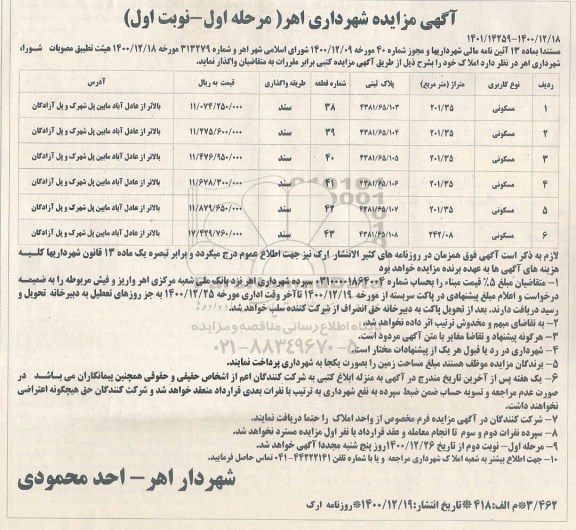 آگهی مزایده شهرداری اهر( مرحله اول-نوبت اول)
۱۴۰۱/۱۴۲۵۹-۱۴۰۰/۱۲/۱۸
مستندا بماده ۱۳ آئین نامه مالی شهرداریها و مجوز شماره ۴۰ مورخه ۱۴۰۰/۱۲/۰۹ شورای اسلامی شهر اهر و شماره ۳۱۳۲۷۹ مورخه ۱۴۰۰/۱۲/۱۸ هیئت تطبیق مصوبات شورا،
شهرداری اهر در نظر دارد املاک خود را بشرح ذیل از طریق آگهی مزایده کتبی برابر مقررات به متقاضیان واگذار نماید.
ردیف نوع کاربری متراژ (متر مربع) پلاک ثبتی شماره قطعه طریقه واگذاری قیمت به ریال آدرس
۱ مسکونی ۲۰۱/۳۵ ۴۳۸۱/۶۵/۱۰۳ ۳۸ سند ۱۱/۰۷۴/۲۵۰/۰۰۰ بالاتر از عادل آباد مابین پل شهرک و پل آزادگان
۲ مسکونی ۲۰۱/۳۵ ۴۳۸۱/۶۵/۱۰۴ ۳۹ سند ۱۱/۲۷۵/۶۰۰/۰۰۰ بالاتر از عادل آباد مابین پل شهرک و پل آزادگان
۳ مسکونی ۲۰۱/۳۵ ۴۳۸۱/۶۵/۱۰۵ ۴۰ سند ۱۱/۴۷۶/۹۵۰/۰۰۰ بالاتر از عادل آباد مابین پل شهرک و پل آزادگان
۴ مسکونی ۲۰۱/۳۵ ۴۳۸۱/۶۵/۱۰۶ ۴۱ سند ۱۱/۶۷۸/۳۰۰/۰۰۰ بالاتر از عادل آباد مابین پل شهرک و پل آزادگان
۵ مسکونی ۲۰۱/۳۵ ۴۳۸۱/۶۵/۱۰۷ ۴۲ سند ۱۱/۸۷۹/۶۵۰/۰۰۰ بالاتر از عادل آباد مابین پل شهرک و پل آزادگان
۶ مسکونی ۲۴۲/۰۸ ۴۳۸۱/۶۵/۱۰۸ ۴۳ سند ۱۷/۴۲۹/۷۶۰/۰۰۰ بالاتر از عادل آباد مابین پل شهرک و پل آزادگان
لازم به ذکر است آگهی فوق همزمان در روزنامه های کثیر الانتشار ارک نیز جهت اطلاع عموم درج میگردد و برابر تبصره یک ماده ۱۳ قانون شهرداریها کلیه
هزینه های آگهی ها به عهده برنده مزایده خواهد بود
۱- متقاضیان مبلغ ۵٪ قیمت مبناء را بحساب شماره ۰۳۱۰۰۰۱۸۶۴۰۰۴ سپرده شهرداری اهر نزد بانک ملی شعبه مرکزی اهر واریز و فیش مربوطه را به ضمیمه
درخواست و اعلام مبلغ پیشنهادی در پاکت سربسته از مورخه ۱۴۰۰/۱۲/۱۹ تاآخر وقت اداری مورخه ۱۴۰۰/۱۲/۲۵ به جز روزهای تعطیل به دبیرخانه تحویل و
رسید دریافت دارند. بعد از تحویل پاکت به دبیرخانه حق انصراف از شرکت کننده سلب خواهد شد.
۲- به تقاضای مبهم و مخدوش ترتیب اثر داده نخواهد شد.
۳- هرگونه پیشنهاد و تقاضا مغایر با متن آگهی مردود است.
۴- شهرداری در رد یا قبول هر یک از پیشنهادات مختار است.
۵- برندگان مزایده موظف هستند مبلغ مساحت زمین را بصورت یکجا به شهرداری پرداخت نمایند.
۶- یک هفته پس از آخرین تاریخ مندرج در آگهی به منزله ابلاغ کتبی به شرکت کنندگان اعم از اشخاص حقیقی و حقوقی همچنین پیمانکاران می باشد در
صورت عدم مراجعه و تسویه حساب ضمن ضبط سپرده به نفع شهرداری به ترتیب با نفرات بعدی قرارداد منعقد خواهد شد و شرکت کنندگان حق هیچگونه اعتراضی
نخواهند داشت.
۷- شرکت کنندگان در آگهی مزایده فرم مخصوص از واحد املاک را حتما دریافت نمایند.
۸- سپرده نفرات دوم و سوم تا انجام معامله و عقد قرارداد با نفر اول مزایده مسترد نخواهد شد.
۹- مرحله اول- نوبت دوم از تاریخ ۱۴۰۰/۱۲/۲۶روز پنج شنبه مجددا آگهی خواهد شد.
۱۰- جهت اطلاع بیشتر به شعبه املاک شهرداری مراجعه و یا با شماره تلفن ۴۴۲۲۲۱۴۱-۰۴۱ تماس حاصل فرمایید.
شهردار اهر- احد محمودی
۳/۴۶۲*م الف:۴۱۸ *تاریخ انتشار:۱۴۰۰/۱۲/۱۹*روزنامه ارک
پایگاه اطلاع رسانی مناقصه و مزایده
۰۲۱-۸۸۳۴۹۶۷۰-۵